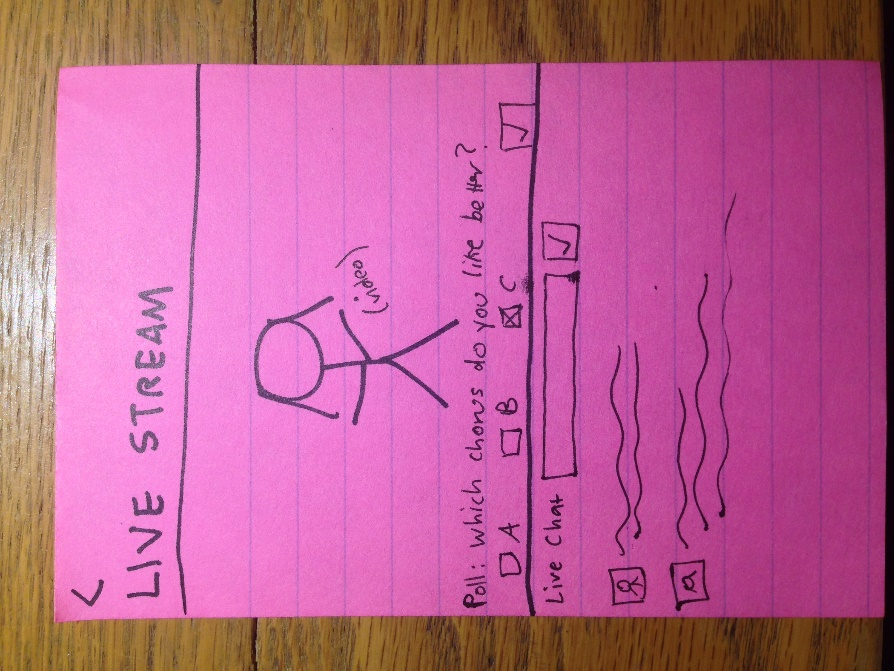 <
LIVE STREAM
(video)
Poll: Which chorus do you like better?
A B C
Live Chat